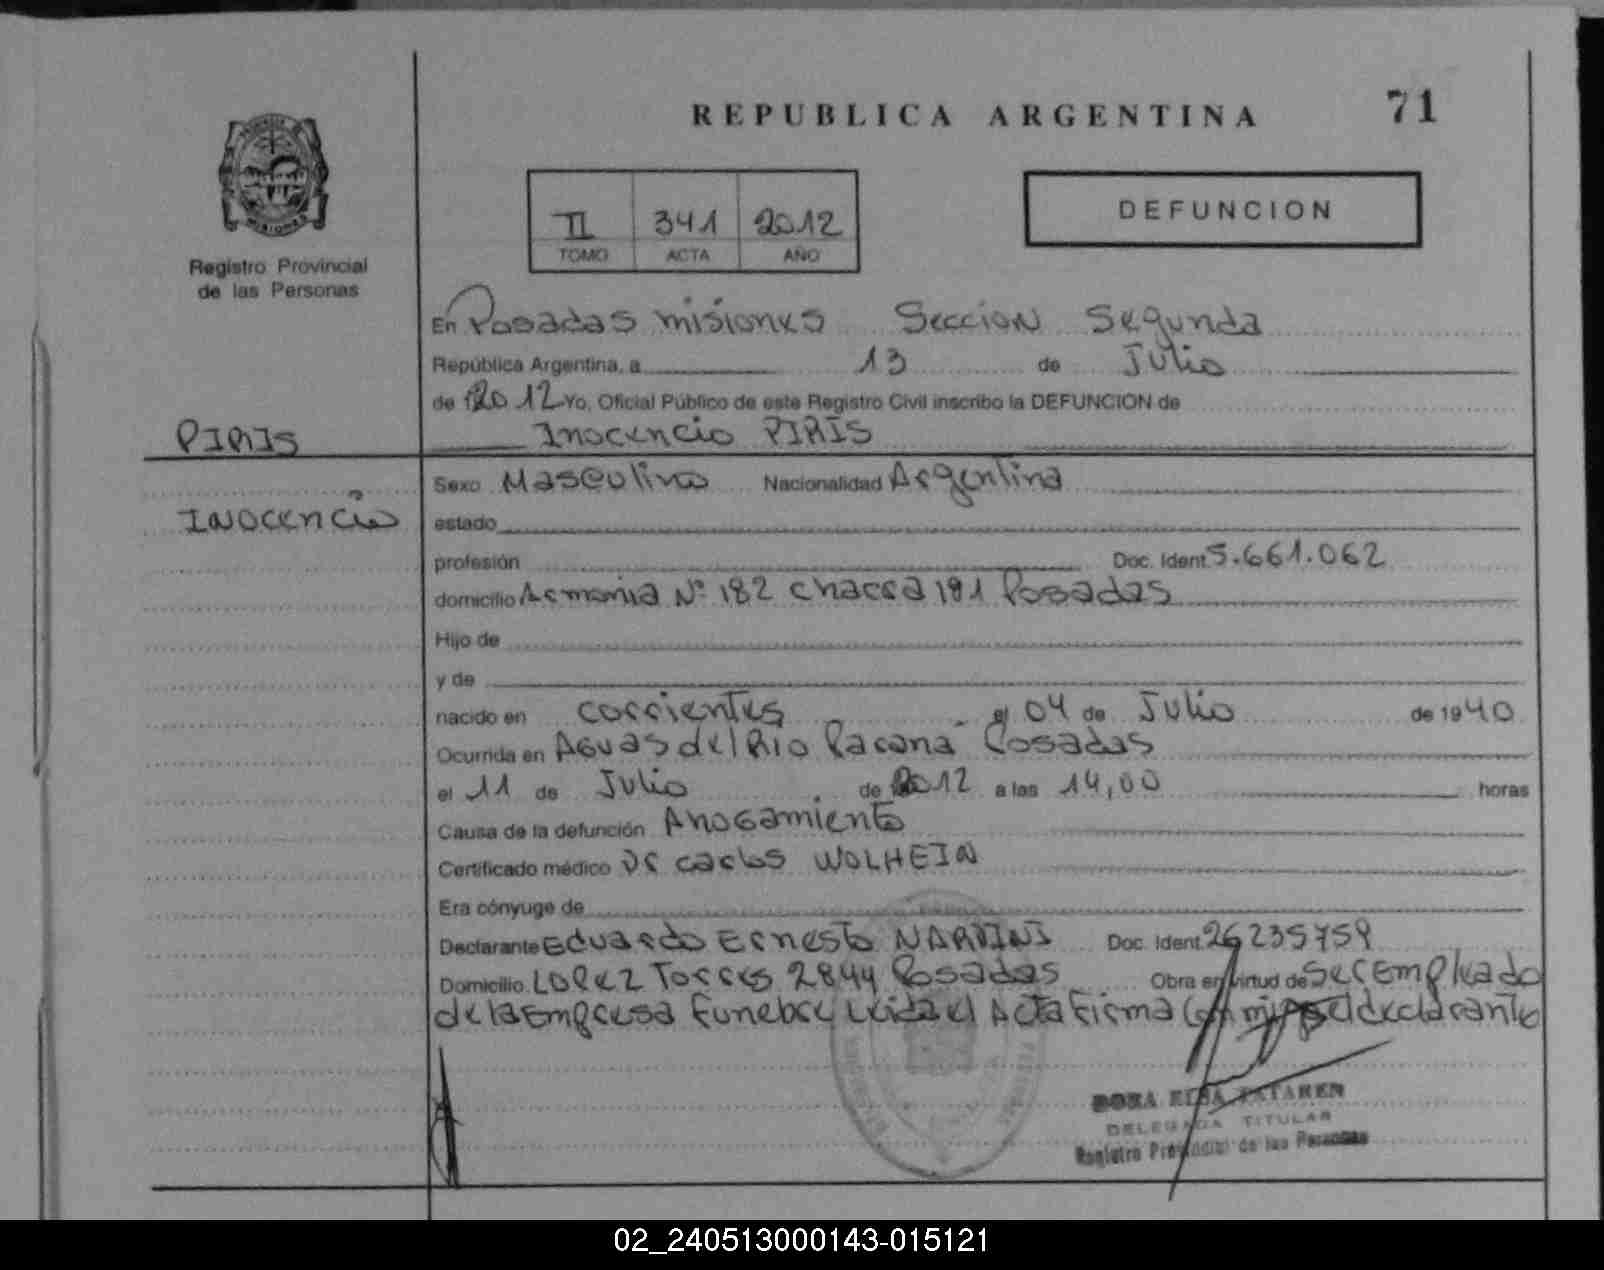 REPUBLICA ARGENTINA
71
II 341 2012
TOMO ACTA AÑO
DEFUNCION
Registro Provincial
de las Personas
En Posadas Misiones Seccion Segunda
República Argentina, a 13 de Julio
de 2012 Yo, Oficial Público de este Registro Civil inscribo la DEFUNCION de
PIRIS
Inocencio PIRIS
INOCENCIO
Sexo Masculino Nacionalidad Argentina
estado
profesión Doc. Ident. 5.661.062
domicilio Armonia Nº 182 chacra 181 Posadas
Hijo de
y de
nacido en corrientes el 04 de Julio de 1940
Ocurrida en Aguas del Rio Parana Posadas
el 11 de Julio de 2012 a las 14,00 horas
Causa de la defunción Ahogamiento
Certificado médico Dr carlos WOLHEIN
Era cónyuge de
Declarante Eduardo Ernesto NARDINI Doc. Ident. 26235759
Domicilio Lopez Torres 2844 Posadas Obra en virtud de ser Empleado
de la Empresa Funebre Leida el Acta Firma Con migo el declarante
DELEGADA TITULAR
Registro Provincial de las Personas
02_240513000143-015121